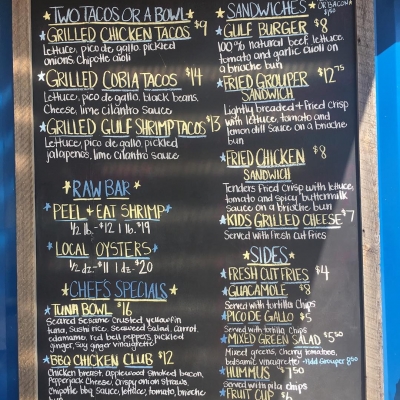 TWO TACOS OR A BOWL
GRILLED CHICKEN TACOS $9
Lettuce, pico de gallo, pickled
onions, chipotle aioli
GRILLED COBIA TACOS $14
Lettuce, pico de gallo, black beans,
Cheese, lime cilantro sauce
GRILLED GULF SHRIMP TACOS $13
Lettuce, pico de gallo, pickled
jalapeños, lime cilantro sauce
RAW BAR
PEEL + EAT SHRIMP
1/2 lb.-$12 | 1 lb.-$19
LOCAL OYSTERS
1/2 dz.-$11 | 1 dz.-$20
CHEF'S SPECIALS
TUNA BOWL $16
Seared sesame crusted yellowfin
tuna, sushi rice, seaweed salad, carrot,
edamame, red bell peppers, pickled
ginger, soy ginger vinaigrette
BBQ CHICKEN CLUB $12
Chicken breast, applewood smoked bacon,
Pepperjack Cheese, crispy onion straws,
Chipotle BBQ sauce, lettuce, tomato, brioche
bun
SANDWICHES
OR BACON
$1.50
GULF BURGER $8
100% natural beef, lettuce,
tomato and garlic aioli on
a brioche bun
FRIED GROUPER $12.75
SANDWICH
Lightly breaded + fried crisp
with lettuce, tomato and
lemon dill sauce on a brioche
bun
FRIED CHICKEN $8
SANDWICH
Tenders fried crisp with lettuce,
tomato and spicy buttermilk
sauce on a brioche bun
KIDS GRILLED CHEESE $7
Served with fresh cut fries
SIDES
FRESH CUT FRIES $4
GUACAMOLE $8
Served with tortilla chips
PICO DE GALLO $5
Served with tortilla chips
MIXED GREEN SALAD $5.50
Mixed greens, cherry tomatoes,
balsamic vinaigrette -Add Grouper 8.50
HUMMUS $7.50
Served with pita chips
FRUIT CUP $6